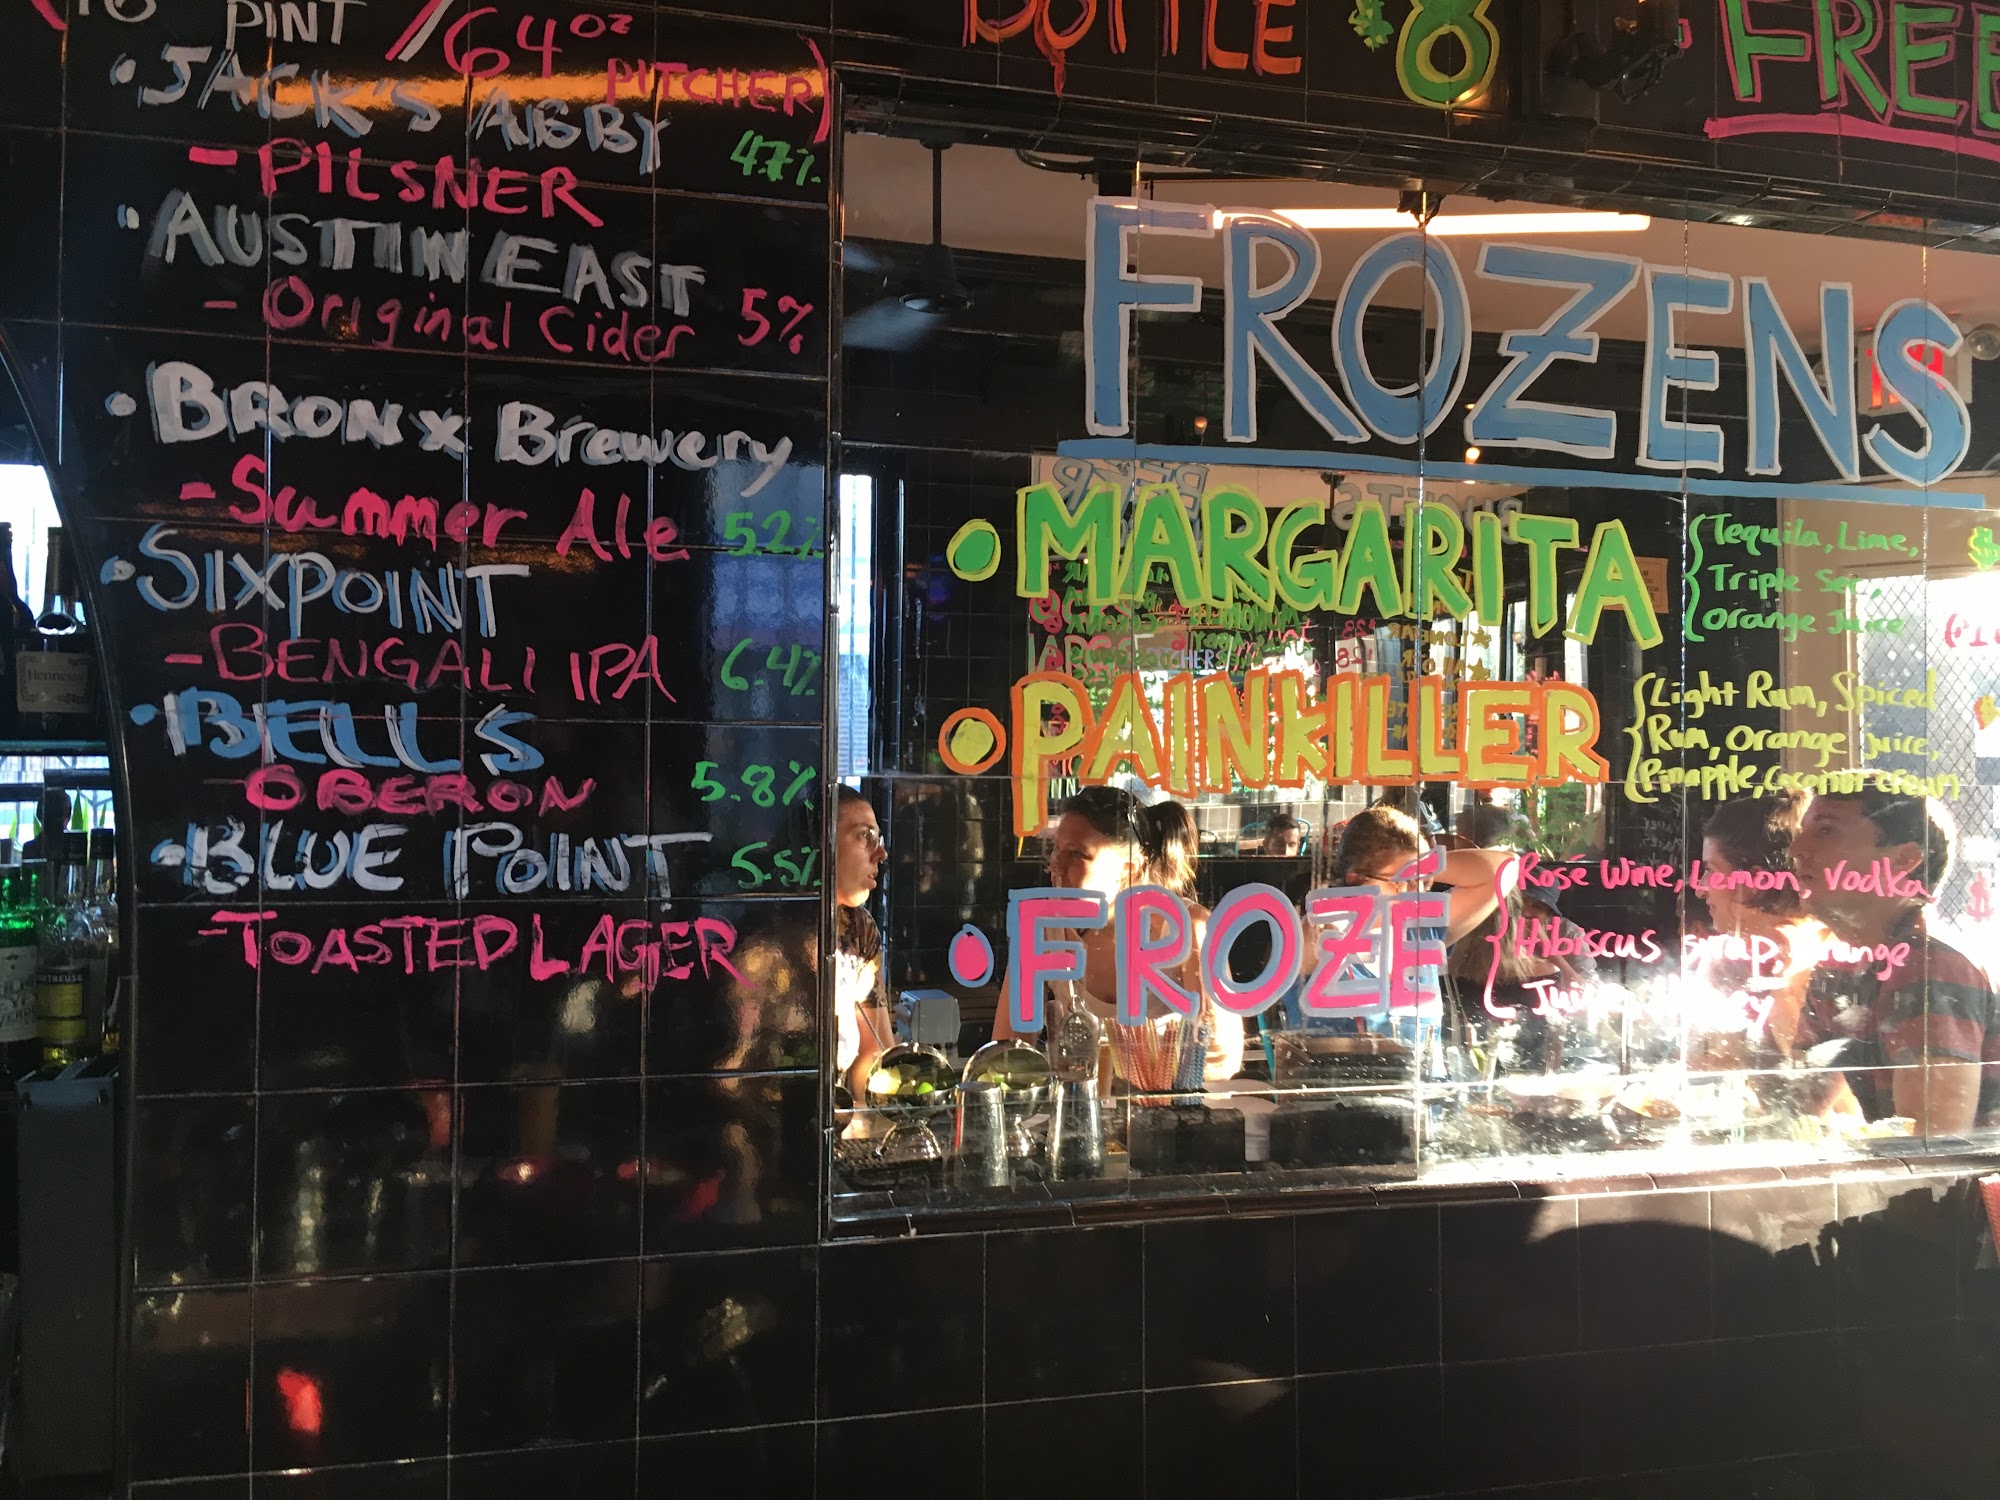 PINT / 64oz
PITCHER)
• JACK'S ABBY 4.7%
- PILSNER
• AUSTIN EAST
- Original Cider 5%
• BRONX Brewery
- Summer Ale 5.2%
• SIXPOINT
- BENGALI IPA 6.4%
• BELL'S
- OBERON 5.8%
• BLUE POINT 5.5%
- TOASTED LAGER
BOTTLE $8
FREE
FROZENS
• MARGARITA
{Tequila, Lime,
Triple Sec,
Orange Juice
• PAINKILLER
{Light Rum, Spiced
Rum, Orange juice,
Pinapple, Coconut cream
• FROZÉ
{Rosé Wine, Lemon, Vodka
Hibiscus syrup, Orange
Juice
Hennessy